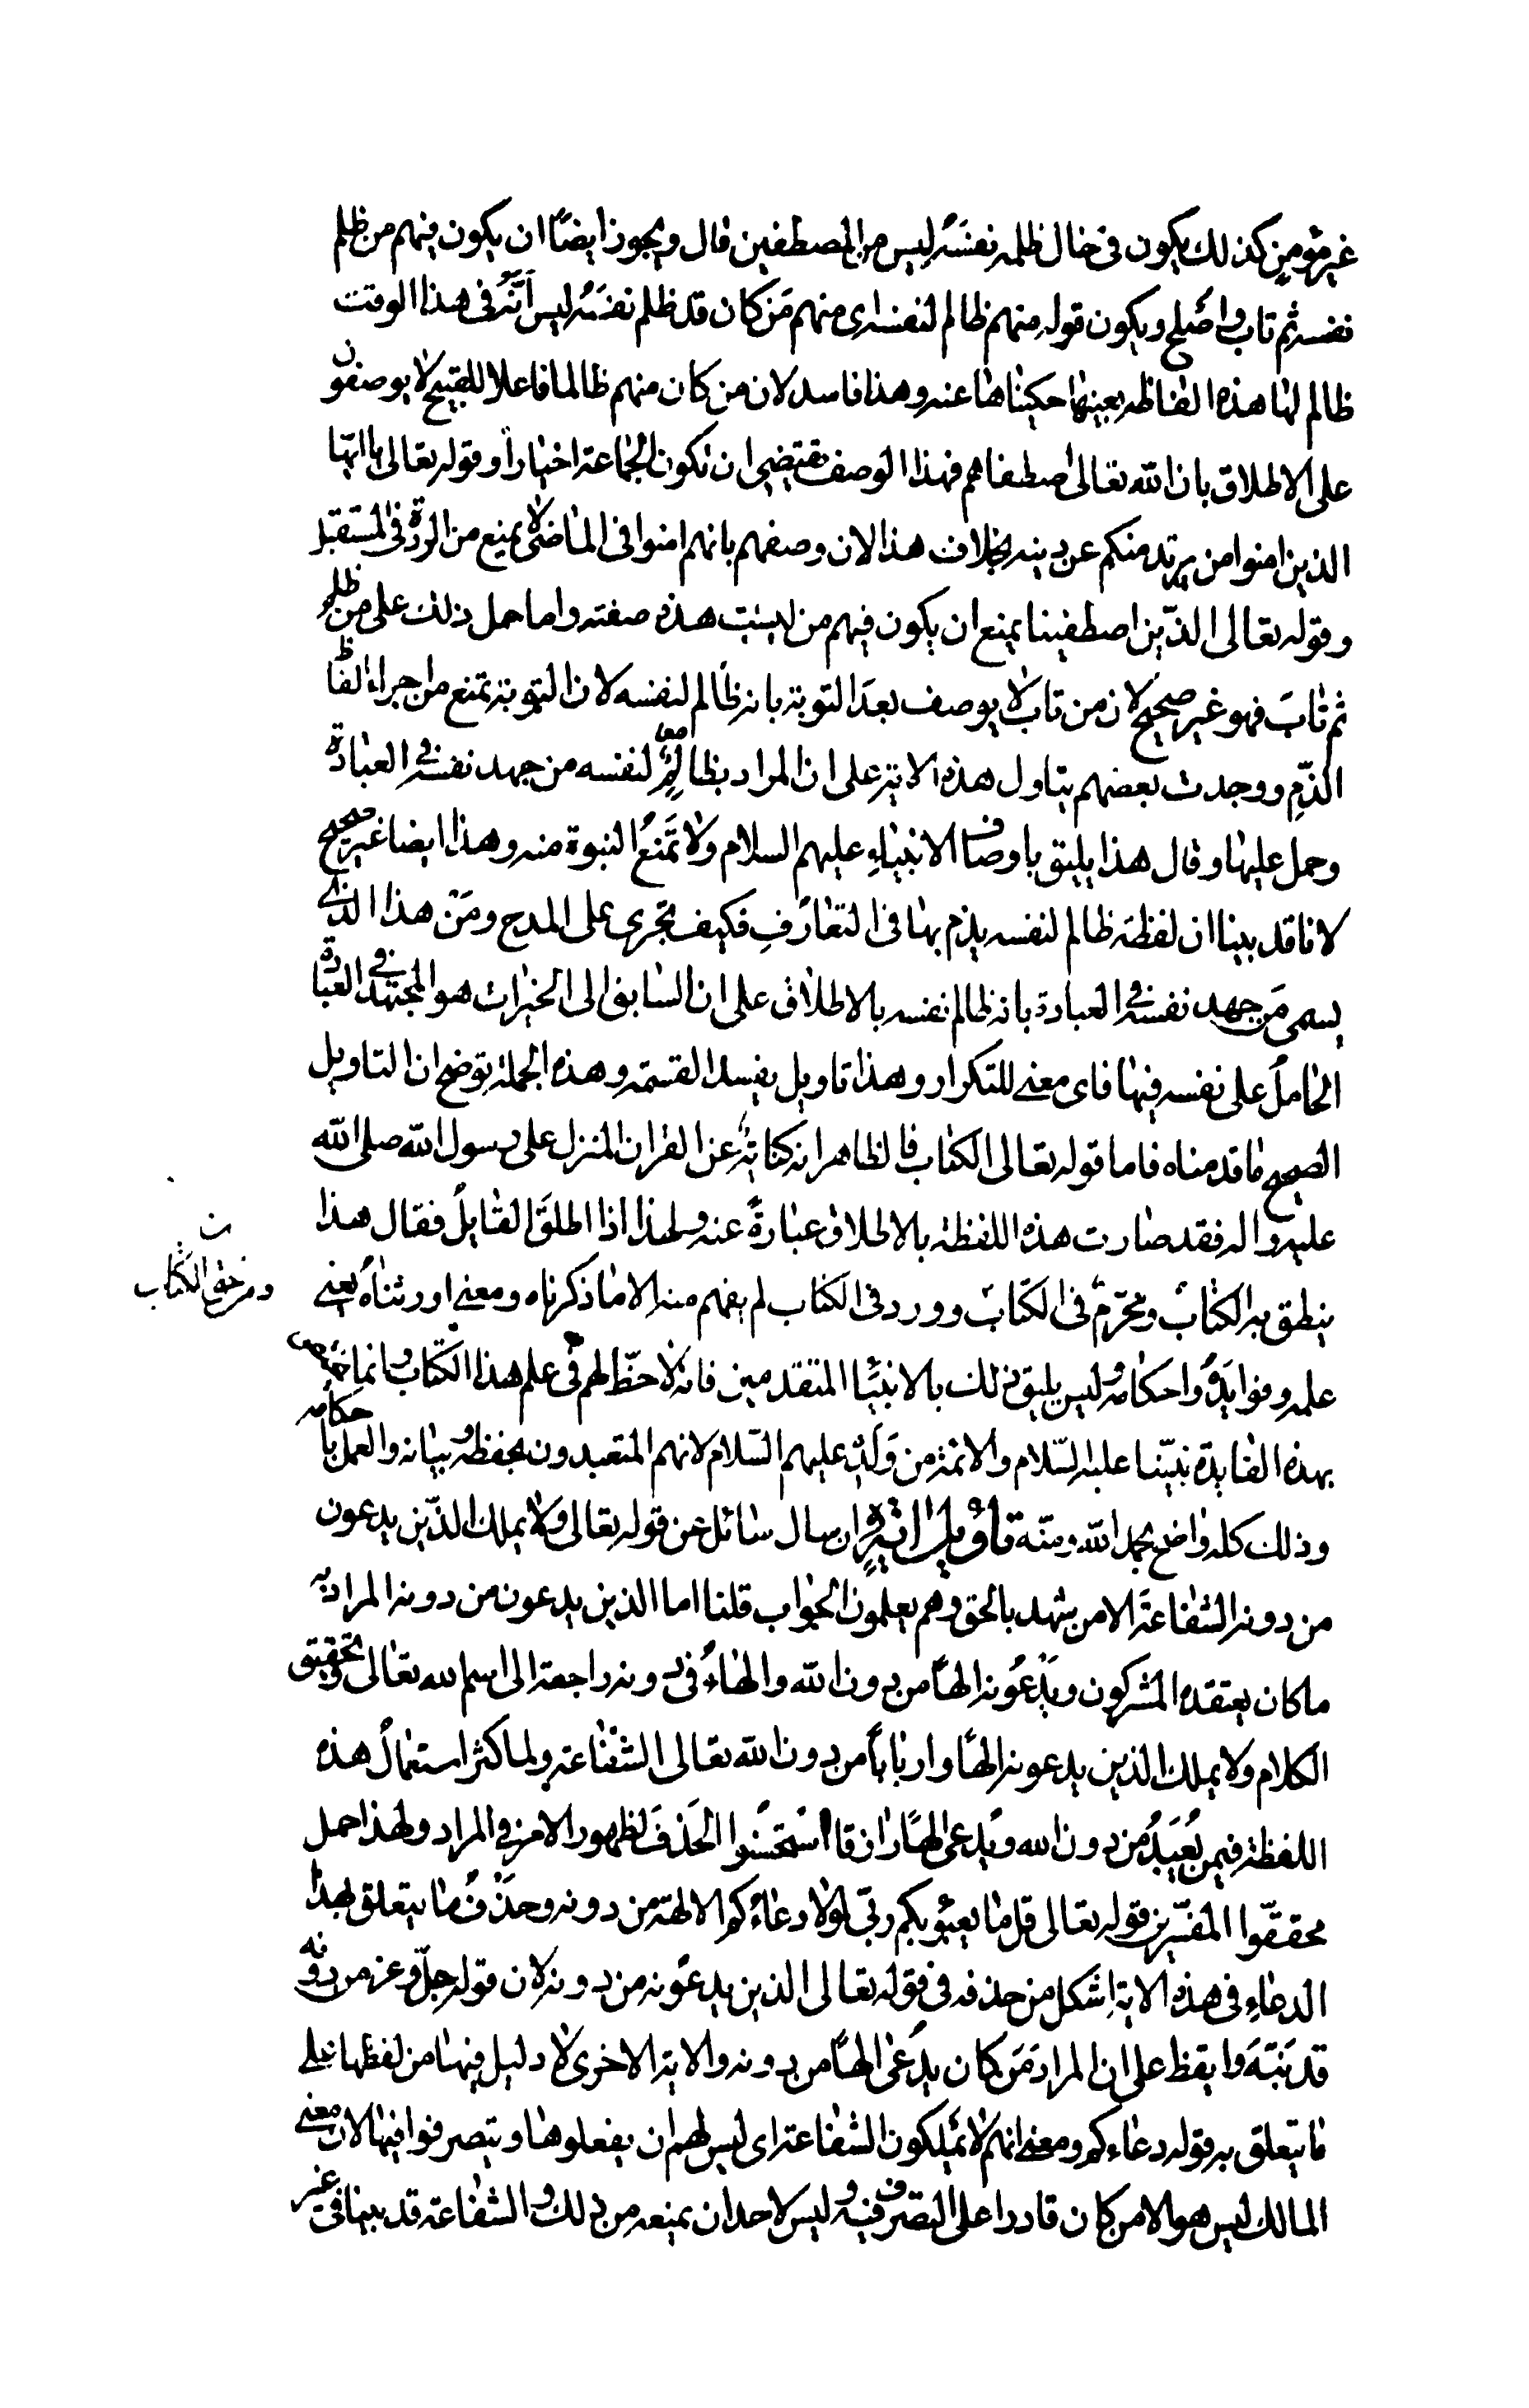 غير مؤمن كذلك يكون في حال ظلمه نفسَهُ ليس من المصطفين قال ويجوز ايضًا ان يكون فيهم من ظلم
نفسه ثم تاب واصلح ويكون قوله منهم ظالم لنفسه اى منهم مَن كان قد ظلم نفسَهُ ليس اَنَّهُ في هذا الوقت
ظالم لها هذه الفاظه بعينها حكيناها عنه وهذا فاسد لان من كان منهم ظالما فاعلا للقبيح لا يوصفون
على الاطلاق بان الله تعالى اصطفاهم فهذا الوصف يقتضي ان تكون الجماعة اخياراً وقوله تعالى يا ايها
الذين امنوا من يرتد منكم عن دينه بخلاف هذا لان وصفهم بانهم امنوا في الماضى لا يمنع من الردة في المستقبل
وقوله تعالى الذّين اصطفينا يمنع ان يكون فيهم من ليست هذه صفته واما حمل ذلك على من ظلم
ثم تابَ فهو غير صحيح لان من تاب لا يوصف بعدَ التوبة بانه ظالم لنفسه لان التوبة تمنع من اجراء الفاظ
الذّمِ ووجدت بعضهم يتاول هذه الاية على ان المراد بظالمٍ لنفسه من جهد نفسه في العبادة
وحمل عليها وقال هذا يليق باوصاف الانبياءِ عليهم السلام ولا تَمنعُ النبوة منه وهذا ايضا غير صحيح
لانا قد بينا ان لفظة ظالم لنفسه يذم بها في التعارُفِ فكيف تجرى على المدح ومَنْ هذا الذى
يسمى مَن جهد نفسه في العبادة بانه ظالم نفسه بالاطلاق على ان السابق الى الخيرات هو المجتهد في العبادة
الحاملُ على نفسه فيها فاى معنى للتكرار وهذا تاويل يفسد القسمة وهذه الجملة توضح ان التاويل
الصحيح ما قدمناه فاما قوله تعالى الكتاب فالظاهر انه كناية عن القران المنزل على رسول الله صلى الله
عليه واله فقد صارت هذه اللفظة بالاطلاق عبارةً عنه ولهذا اذا اطلقَ القايلُ فقال هذا
ينطق به الكتابُ ومحرّمٌ في الكتاب وورد في الكتاب لم يفهم منه الا ما ذكرناه ومعنى اورثناهُ يعنى
علمه وفوايدَهُ واحكامه وليس يليق ذلك بالانبيا المتقدمين فانه لا حظّ لهم في علم هذا الكتاب وانما خصّ
بهذه الفايدة نبيّنا عليه السّلام والائمة من وَلَدِهِ عليهم السّلام لانهم المتعبدون بحفظه وبيانه والعمل باحكامه
وذلك كله واضح بحمد الله ومنّه تاويل اية ان سال سائل عن قوله تعالى ولا يملك الذّين يدعون
من دونه الشفاعة الا من شهد بالحق وهم يعلمون الجواب قلنا اما الذين يدعون من دونه المراد به
ما كان يعتقده المشركون ويَدْعُونه الهاً من دون الله والهاءُ في دونه راجعة الى اسم الله تعالى وتحقيق
الكلام ولا يملك الذين يدعونه الهًا واربابًا من دون الله تعالى الشفاعة ولما كثر استعمالُ هذه
اللفظة فيمن يُعْبَدُ من دون الله ويُدعى الهًا استحسنوا الحَذفَ لظهور الامر في المراد ولهذا حمل
محققّوا المفسّرين قوله تعالى قل ما يعبؤ بكم ربّى لولا دعاءُكم الالهة من دونه وحَذْفُ ما يتعلق بهذا
الدعاءِ في هذه الاية اشكل من حذفه في قوله تعالى الذين يدعُونه من دونه لان قوله جلّ وعز من دونه
قد نَبّهَ وايقظ على ان المرادَ مَن كان يُدْعَى الهًا من دونه والاية الاخرى لا دليل فيها من لفظها على
ما يتعلق به قوله دعاءكم ومعنى انهم لا يملكون الشفاعة اى ليس لهم ان يفعلوها ويتصرفوا فيها لان معنى
المالك ليس هو الا من كان قادرا على التصرف فيه وليس لاحد ان يمنعه من ذلك والشفاعة قد بينا في غير